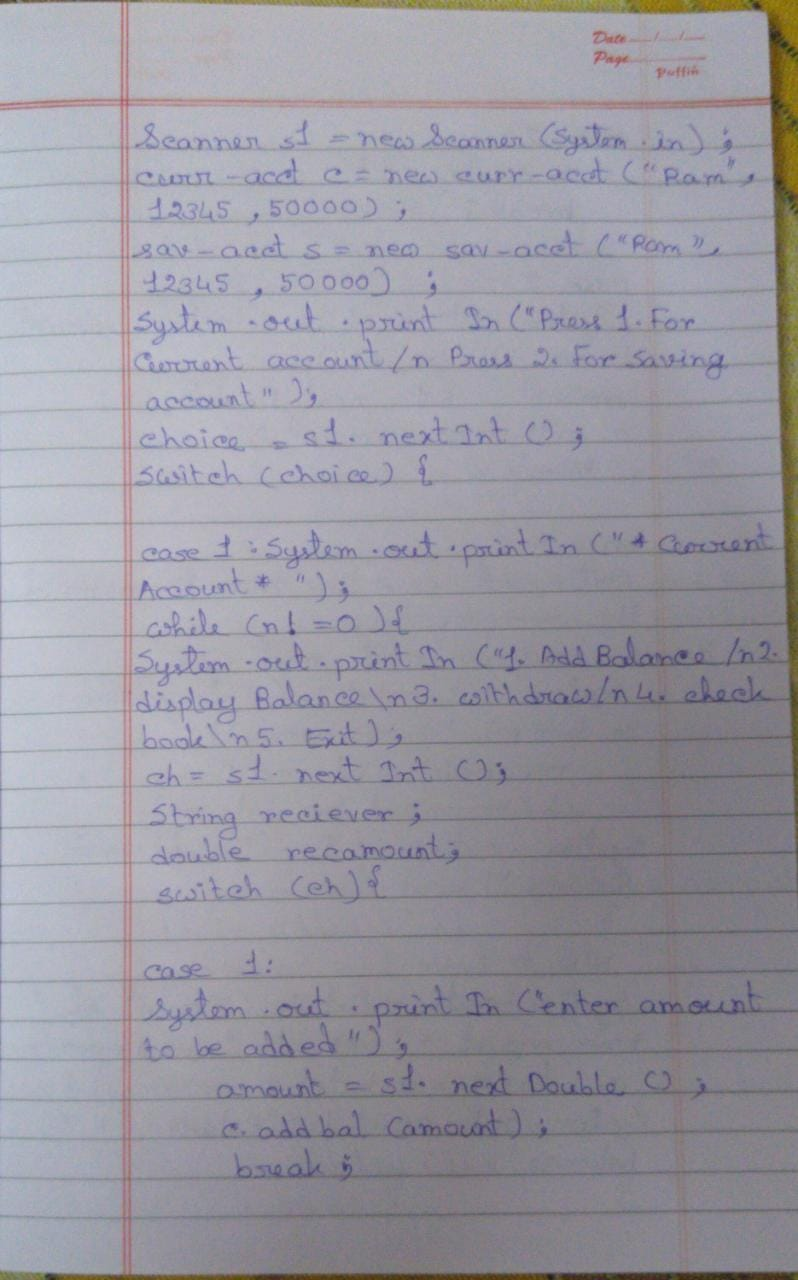 Date __/__/__
Page
Puffin
Scanner s1 = new Scanner (System . in) ;
curr - acct c = new curr - acct ("Ram",
12345 , 50000) ;
sav - acct s = new sav - acct ("Ram",
12345 , 50000) ;
System . out . print In ("Press 1. For
Current account /n Press 2. For Saving
account" );
choice = s1. next Int () ;
switch (choice) {
case 1 : System . out . print In (" * Current
Account * " ) ;
while (n! = 0 ) {
System . out . print In ("1. Add Balance /n2.
display Balance \n3. withdraw /n 4. check
book \n 5. Exit ) ;
ch = s1. next Int () ;
String reciever ;
double recamount ;
switch (ch) {
case 1:
System . out . print In ("enter amount
to be added " ) ;
amount = s1. next Double () ;
c. add bal (amount) ;
break ;